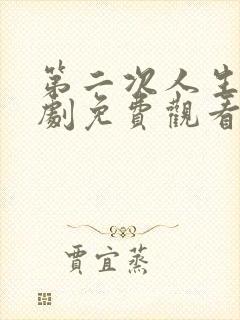 第二次人生
劇免費觀看
賈宜蒸